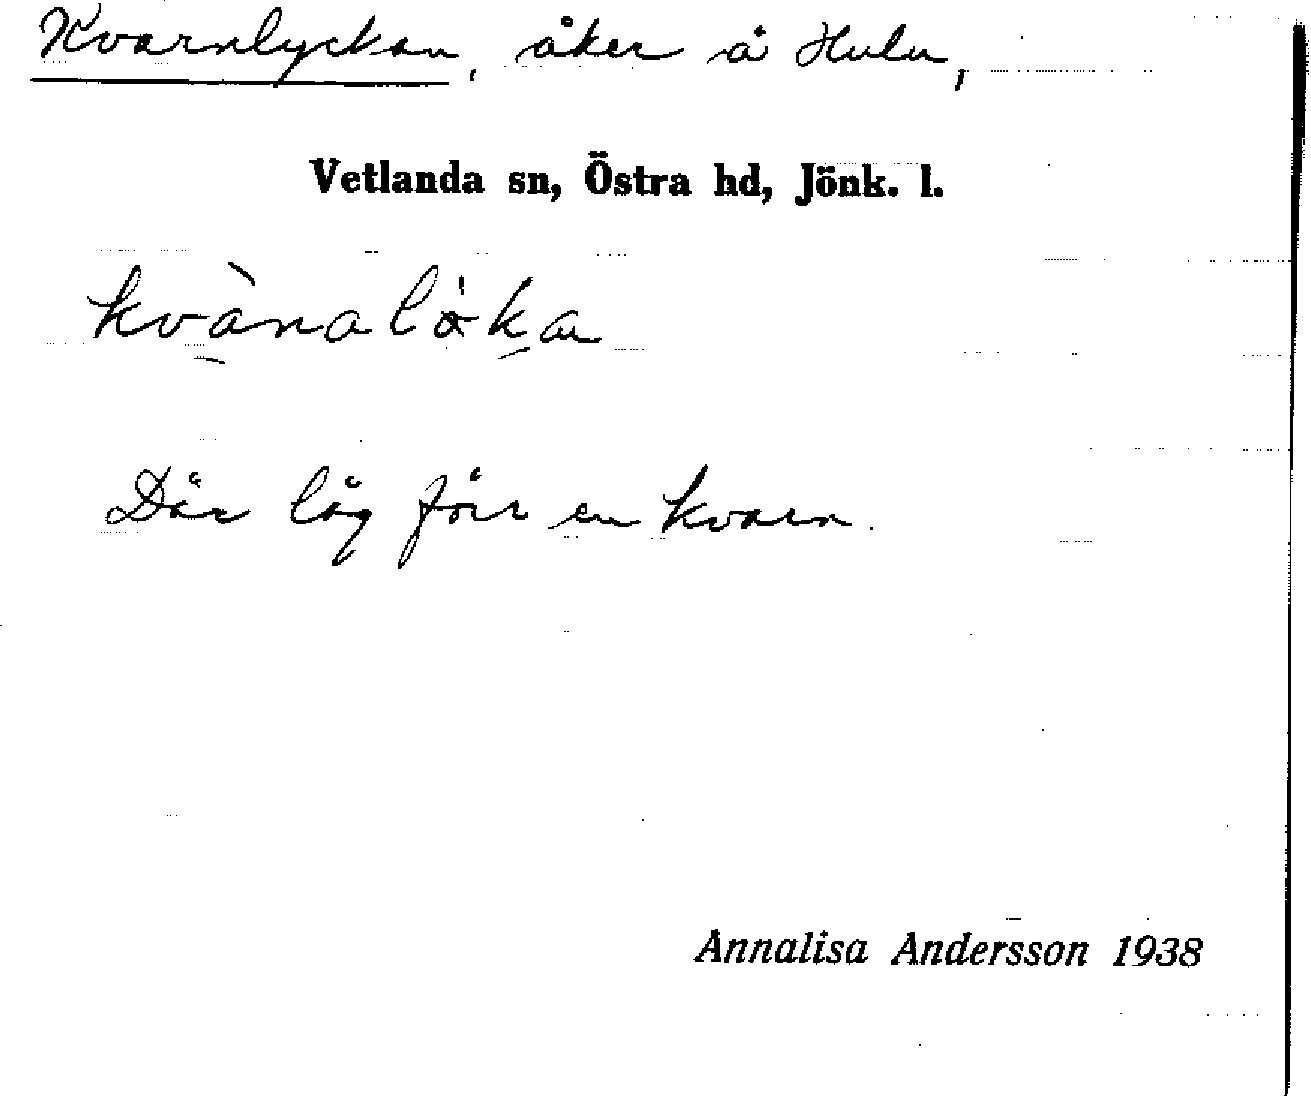 Kvarnlyckan, åker å Hulu,
Vetlanda sn, Östra hd, Jönk. l.
kvànalö̀ka
Där låg förr en kvarn.
Annalisa Andersson 1938